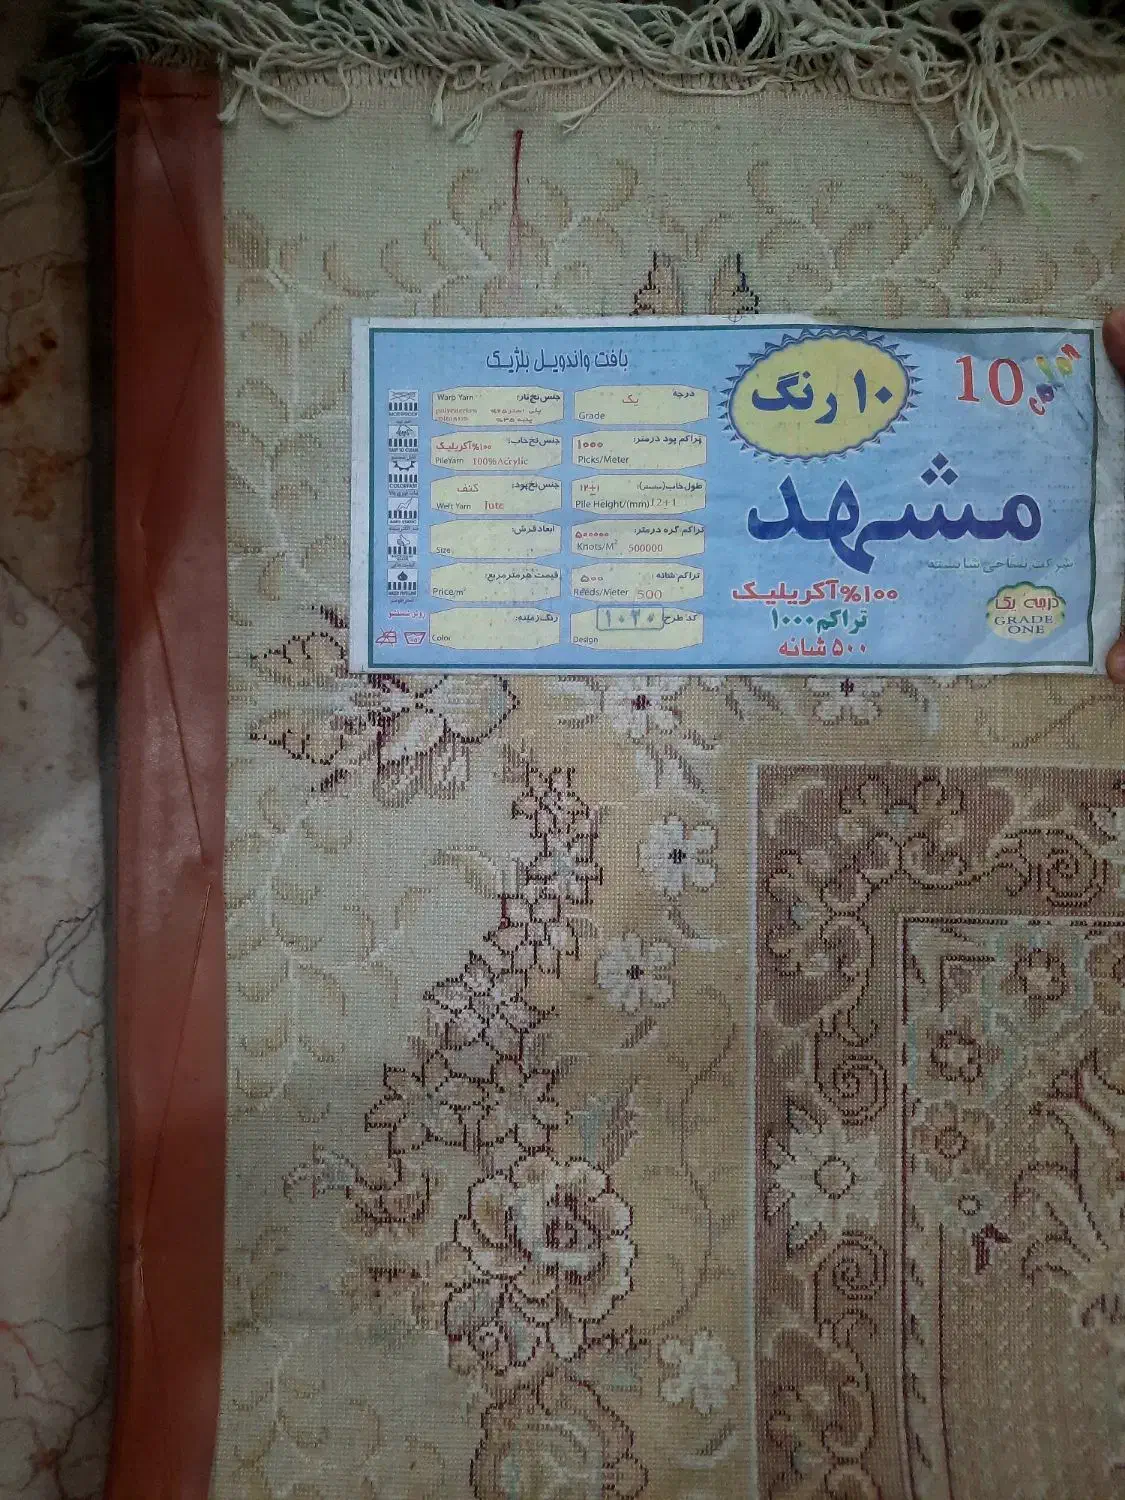 بافت واندویل بلژیک
۱۰ رنگ
10
مشهد
شرکت نساجی شایسته
۱۰۰% آکریلیک
تراکم ۱۰۰۰
۵۰۰ شانه
درجه یک
GRADE
ONE
درجه
یک
Grade
تراکم پود درمتر:
۱۰۰۰
Picks/Meter
طول خاب
۱۲+۱
Pile Height/(mm) 12+1
تراکم گره درمتر:
۵۰۰۰۰۰
Knots/M² 500000
تراکم شانه
۵۰۰
Reeds/Meter 500
کد طرح
۱۰۲۰
Design
جنس نخ تار:
Warp Yarn
پلی استر ۶۵%
پنبه ۳۵%
جنس نخ خاب:
۱۰۰% آکریلیک
Pile Yarn 100% Acrylic
جنس نخ پود:
کنف
Weft Yarn Jute
ابعاد فرش:
Size
قیمت هر متر مربع:
Price/m²
رنگ زمینه:
Color
COLORFAST